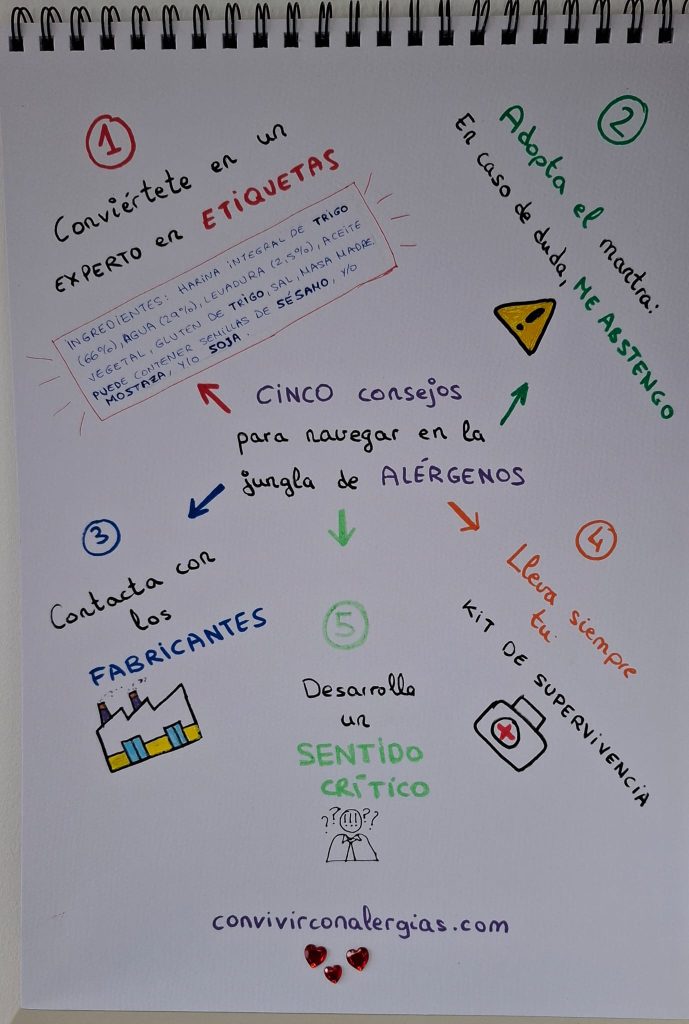 CINCO consejos
para navegar en la
jungla de ALÉRGENOS
1
Conviértete en un
EXPERTO en ETIQUETAS
INGREDIENTES: HARINA INTEGRAL DE TRIGO
(66%), AGUA (29%), LEVADURA (2,5%), ACEITE
VEGETAL, GLUTEN DE TRIGO, SAL, MASA MADRE.
PUEDE CONTENER SEMILLAS DE SÉSAMO, Y/O
MOSTAZA, Y/O SOJA.
2
Adopta el mantra:
En caso de duda, ME ABSTENGO
!
3
Contacta con
los
FABRICANTES
4
Lleva siempre
tu
KIT DE SUPERVIVENCIA
5
Desarrolla
un
SENTIDO
CRÍTICO
??!!!??
convivirconalergias.com